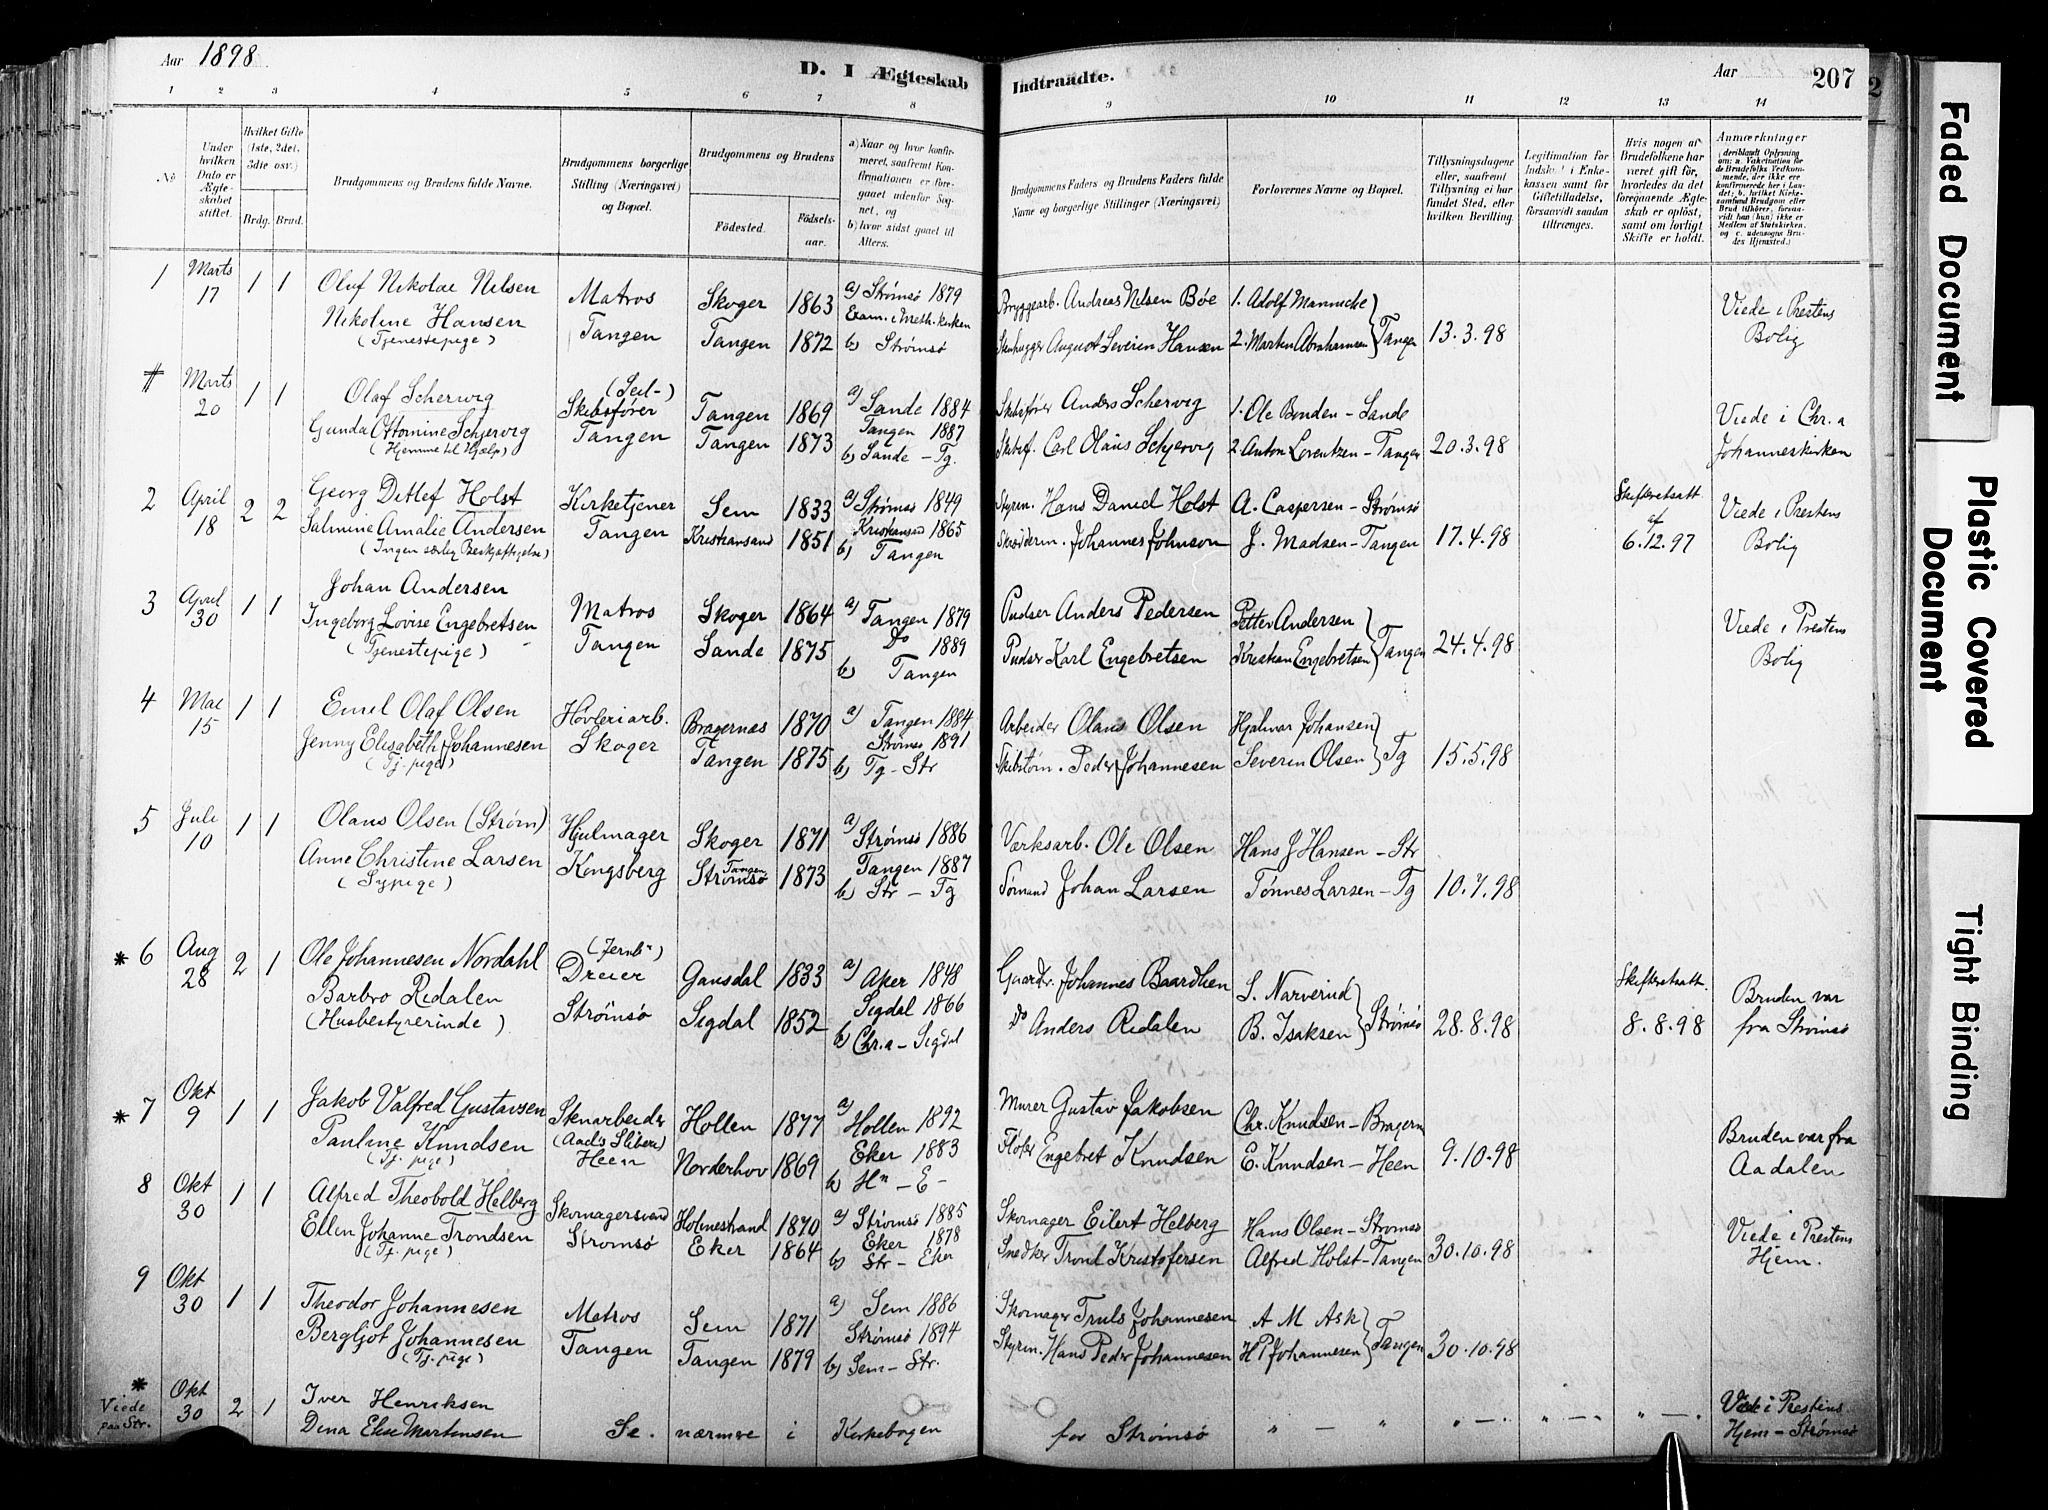 Aar 1898
D. I Ægteskab Indtraadte.
Aar 207
1 2 3 4 5 6 7 8 9 10 11 12 13 14
No
Under hvilken Dato er Ægteskabet stiftet.
Hvilket Gifte (1ste, 2det, 3die osv.)
Brdg. Brud.
Brudgommens og Brudens fulde Navne.
Brudgommens borgerlige Stilling (Næringsvei) og Bopæl.
Brudgommens og Brudens
Fødested. Fødselsaar.
a) Naar og hvor konfirmeret, saafremt Konfirmationen er foregaaet udenfor Sognet, og
b) hvor sidst gaaet til Alters.
Brudgommens Faders og Brudens Faders fulde Navne og borgerlige Stillinger (Næringsvei)
Forlovernes Navne og Bopæl.
Tillysningsdagene eller, saafremt Tillysning ei har fundet Sted, efter hvilken Bevilling.
Legitimation for Indskud i Enkekassen samt for Giftetilladelse, forsaavidt saadan tiltrænges.
Hvis nogen af Brudefolkene har været gift før, hvorledes da det foregaaende Ægteskab er opløst, samt om lovligt Skifte er holdt.
Anmærkninger (deriblandt Oplysning om: a. Vakcination for de Brudefolks Vedkommende, der ikke ere konfirmerede her i Landet; b. hvilket Kirkesamfund Brudgom eller Brud tilhører, forsaavidt han (hun) ikke er Medlem af Statskirken. og c. udensogns Brudes Hjemsted.)
1 Marts 17 1 1 Oluf Nikolai Nilsen Matros Skoger 1863 a) Strømsø 1879 Bryggearb. Andreas Nilsen Bøe 1. Adolf Manniche
Nikoline Hansen Tangen Tangen 1872 Exam. i Meth. kirken Stenhugger August Severin Hansen 2. Martin Abrahamsen } Tangen 13.3.98 Viede i Prestens Bolig
(Tjenestepige) b) Strømsø
# Marts 20 1 1 Olaf Scherwig (Seil-) Skibsfører Tangen 1869 a) Sande 1884 Skibsfører Anders Schervig 1. Ole Bonden - Sande Viede i Chr.a
Gunda Ottomine Schjervig Tangen Tangen 1873 Tangen 1887 Skibsf. Carl Olaus Schjervig 2. Anton Lorentzen - Tangen 20.3.98 Johanneskirken
(Hjemme til Hjælp) b) Sande - Tg.
2 April 18 2 2 Georg Detlef Holst Kirketjener Sem 1833 a) Strømsø 1849 Styrm. Hans Daniel Holst A. Caspersen - Strømsø Skifteretsatt. af Viede i Prestens
Salmine Amalie Andersen Tangen Kristiansand 1851 Kristiansand 1865 Johannes Johnson J. Madsen - Tangen 17.4.98 6.12.97 Bolig
(Ingen særlig Beskjæftigelse) b) Tangen
3 April 30 1 1 Johan Andersen Matros Skoger 1864 a) Tangen 1879 Pudser Anders Pedersen Petter Andersen
Ingeborg Lovise Engebretsen Tangen Sande 1875 Do 1889 Pudser Karl Engebretsen Kristian Engebretsen } Tangen 24.4.98 Viede i Prestens Bolig
(Tjenestepige) b) Tangen
4 Mai 15 1 1 Emil Olaf Olsen Høvleriarb. Bragernæs 1870 a) Tangen 1884 Arbeider Olaus Olsen Hjalmar Johansen
Jenny Elisabeth Johannesen Skoger Tangen 1875 Strømsø 1891 Skibstøm. Peder Johannesen Severin Olsen } Tg 15.5.98
(Tj. pige) b) Tg - Str
5 Juli 10 1 1 Olaus Olsen (Strøm) Hjulmager Skoger 1871 a) Strømsø 1886 Værksarb. Ole Olsen Hans J Hansen - Str
Anne Christine Larsen Kongsberg Tangen Strømsø 1873 Tangen 1887 Sømand Johan Larsen Tønnes Larsen - Tg 10.7.98
(Sypige) b) Str - Tg
* 6 Aug 28 2 1 Ole Johannesen Nordahl (Jernb.) Dreier Gausdal 1833 a) Aker 1848 Gaardbr. Johannes Baardlien S. Narverud Skifteretsatt. Bruden var
Barbro Redalen Strømsø Sigdal 1852 Sigdal 1866 Do Anders Redalen B. Isaksen } Strømsø 28.8.98 8.8.98 fra Strømsø
(Husbestyrerinde) b) Chr.a - Sigdal
* 7 Okt 9 1 1 Jakob Valfred Gustavsen Hollen 1877 a) Hollen 1892 Murer Gustav Jakobsen Chr. Knudsen - Bragern
Pauline Knudsen Heen Norderhov 1869 Eker 1883 Fløter Engebret Knudsen E. Knudsen - Heen 9.10.98 Bruden var fra Aadalen
(Tj. pige) b) Hn - E -
8 Okt 30 1 1 Alfred Theobold Helberg Skomagersvend Holmestrand 1870 a) Strømsø 1885 Skomager Eilert Helberg Hans Olsen - Strømsø Viede i Prestens
Ellen Johanne Trondsen Strømsø Eker 1864 Eker 1878 Snedker Trond Kristofersen Alfred Holst - Tangen 30.10.98 Hjem.
(Tj. pige) b) Str - Eker
9 Okt 30 1 1 Theodor Johannesen Matros Sem 1871 a) Sem 1886 Skomager Truls Johannesen A M Ask
Bergljot Johannesen Tangen Tangen 1879 Strømsø 1894 Styrm. Hans Peder Johannesen H P Johannesen } Tangen 30.10.98
(Tj. pige) b) Sem - Str.
* Viede paa Str. Okt 30 2 1 Iver Henriksen Viede i Prestens
Dina Else Martinsen Se nærmere i Kirkebogen for Strømsø " — " " — " " — " " — " Hjem - Strømsø
Faded Document
Plastic Covered Document
Tight Binding